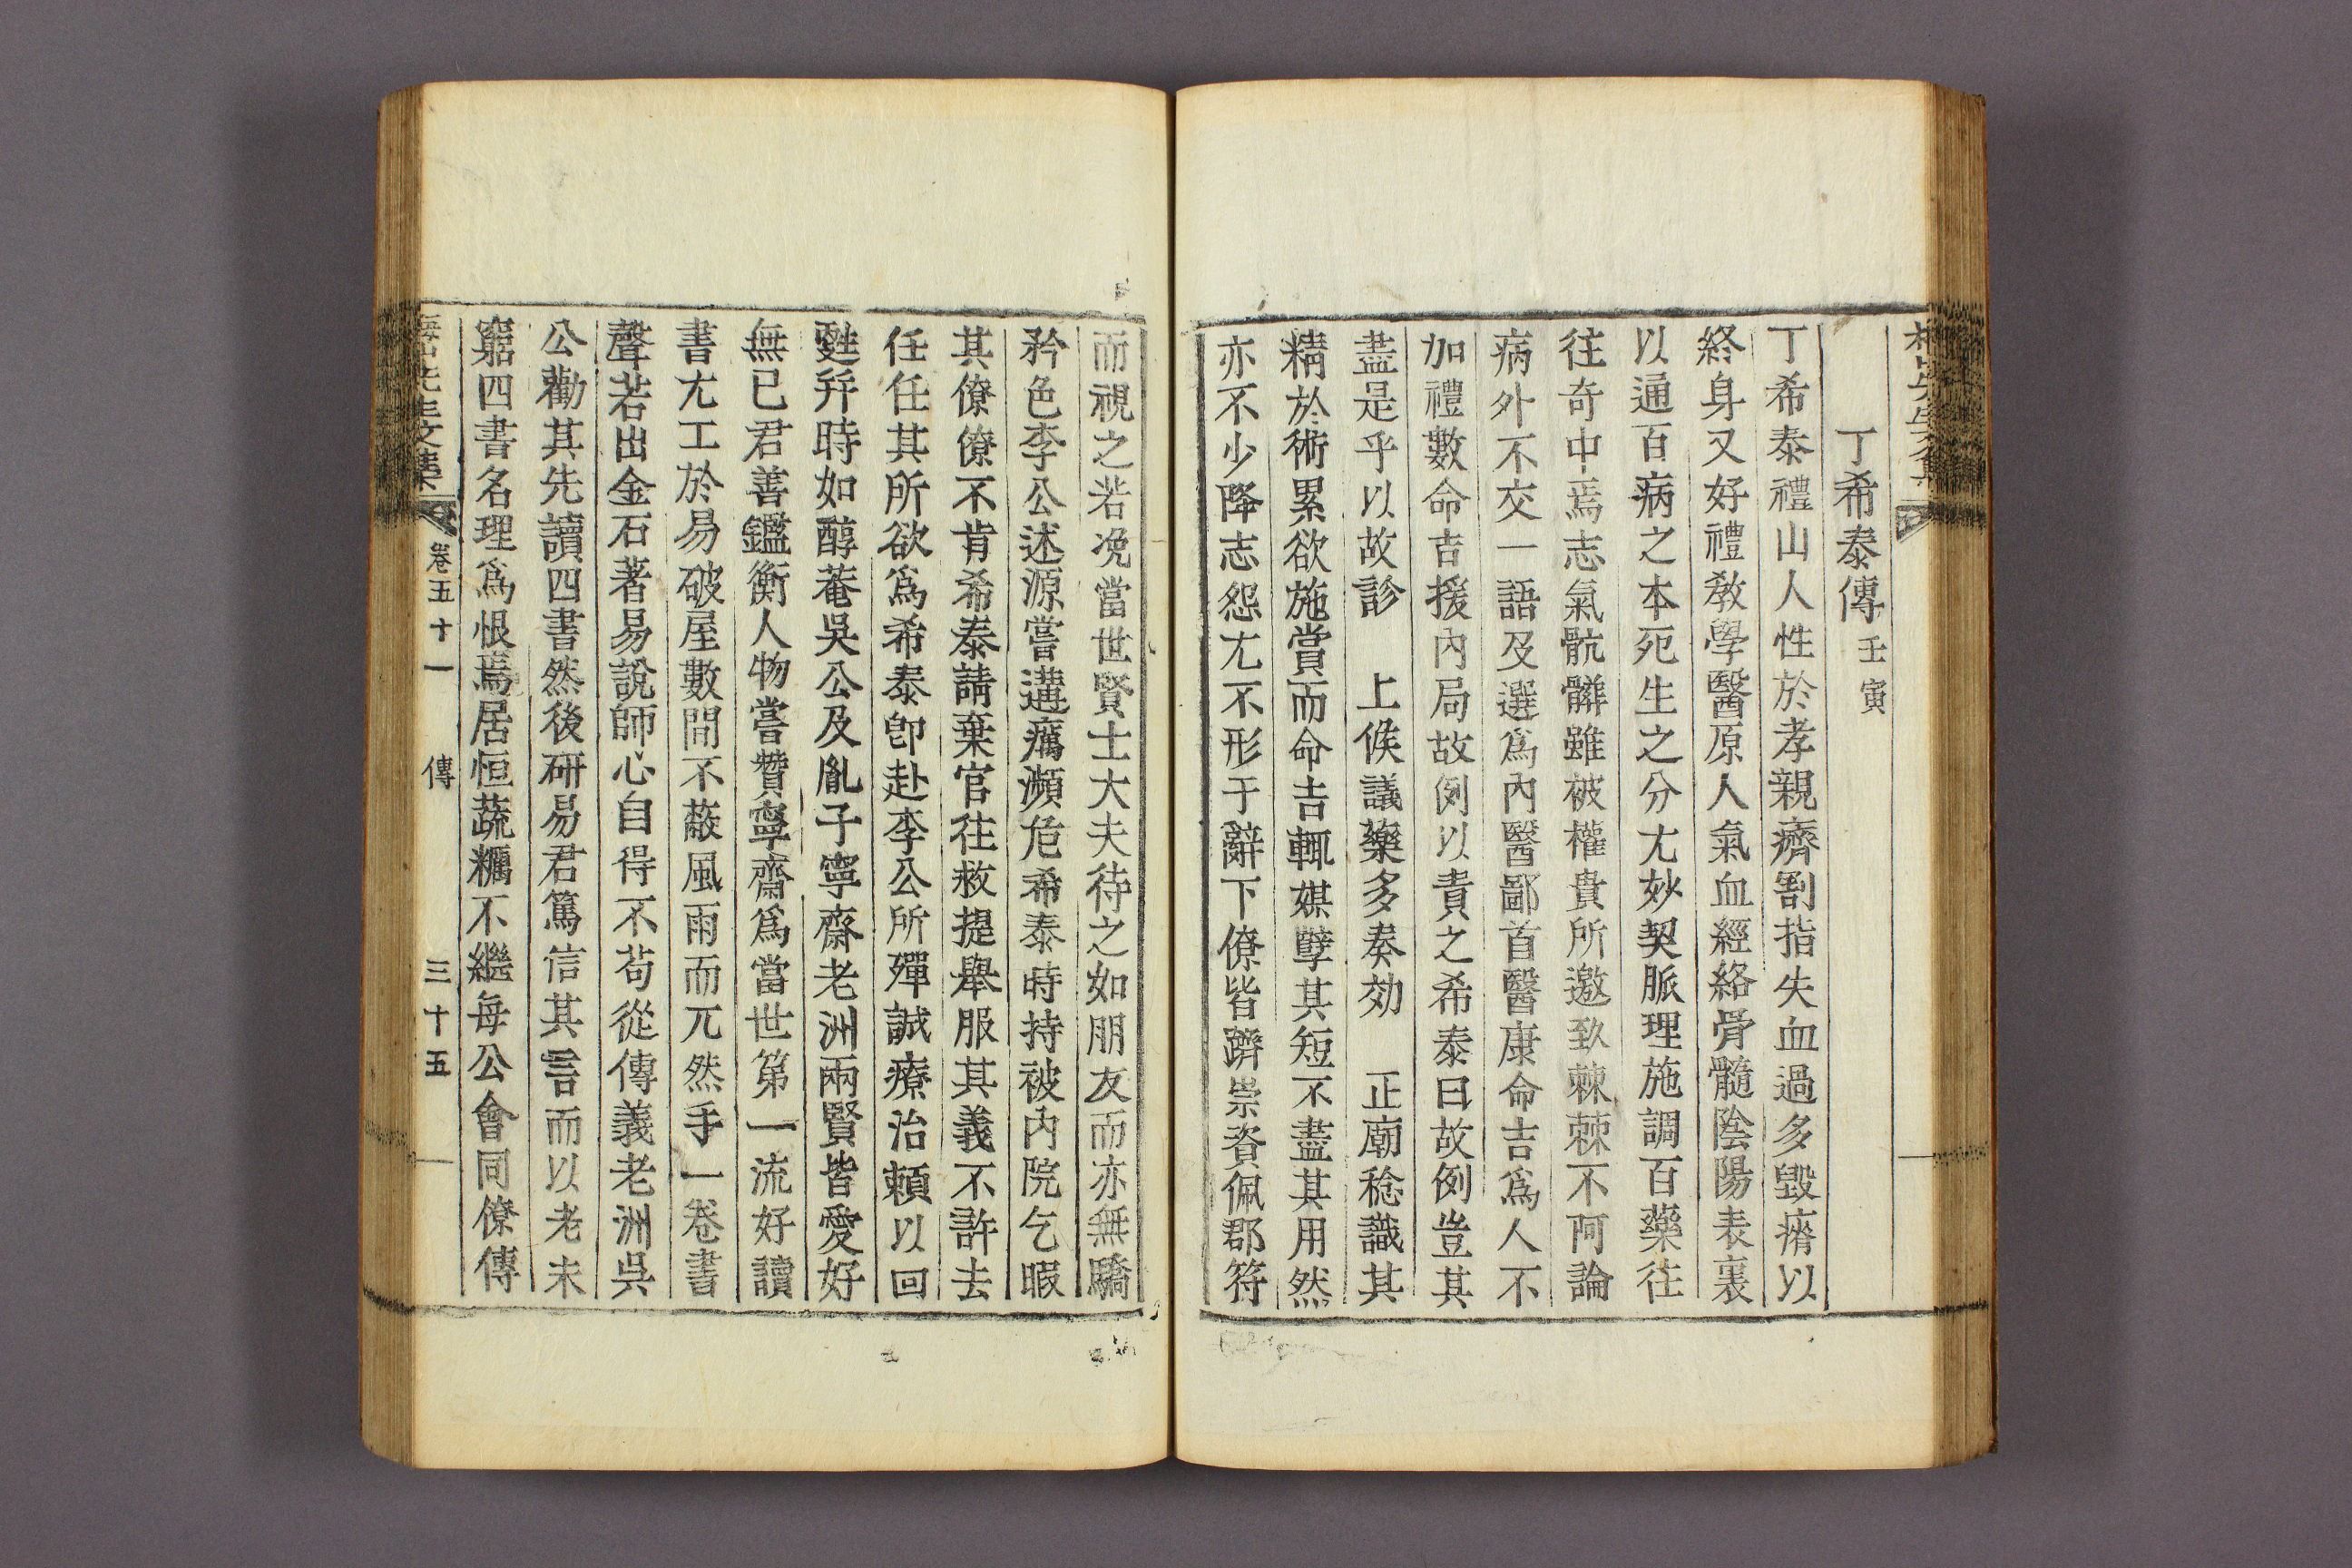 丁希泰傳 壬寅
丁希泰禮山人性於孝親癠割指失血過多毀瘠以
終身又好禮敎學醫原人氣血經絡骨髓陰陽表裏
以通百病之本死生之分尤妙契脈理施調百藥往
往奇中焉志氣骯髒雖被權貴所邀致棘棘不阿論
病外不交一語及選爲內醫鄙首醫康命吉爲人不
加禮數命吉援內局故例以責之希泰曰故例豈其
盡是乎以故診 上候議藥多奏効 正廟稔識其
精於術累欲施賞而命吉輒媒孼其短不盡其用然
亦不少降志怨尤不形于辭下僚皆躋崇資佩郡符
而視之若浼當世賢士大夫待之如朋友而亦無驕
矜色李公述源嘗遘癘瀕危希泰時持被內院乞暇
其僚僚不肯希泰請棄官往救提擧服其義不許去
任任其所欲爲希泰卽赴李公所殫誠療治賴以回
甦幷時如醇菴吳公及胤子寧齋老洲兩賢皆愛好
無已君善鑑衡人物嘗贊寧齋爲當世第一流好讀
書尤工於易破屋數間不蔽風雨而兀然手一卷書
聲若出金石著易說師心自得不苟從傳義老洲吳
公勸其先讀四書然後硏易君篤信其言而以老未
窮四書名理爲恨焉居恒蔬糲不繼每公會同僚傳
卷五十一 傳 三十五